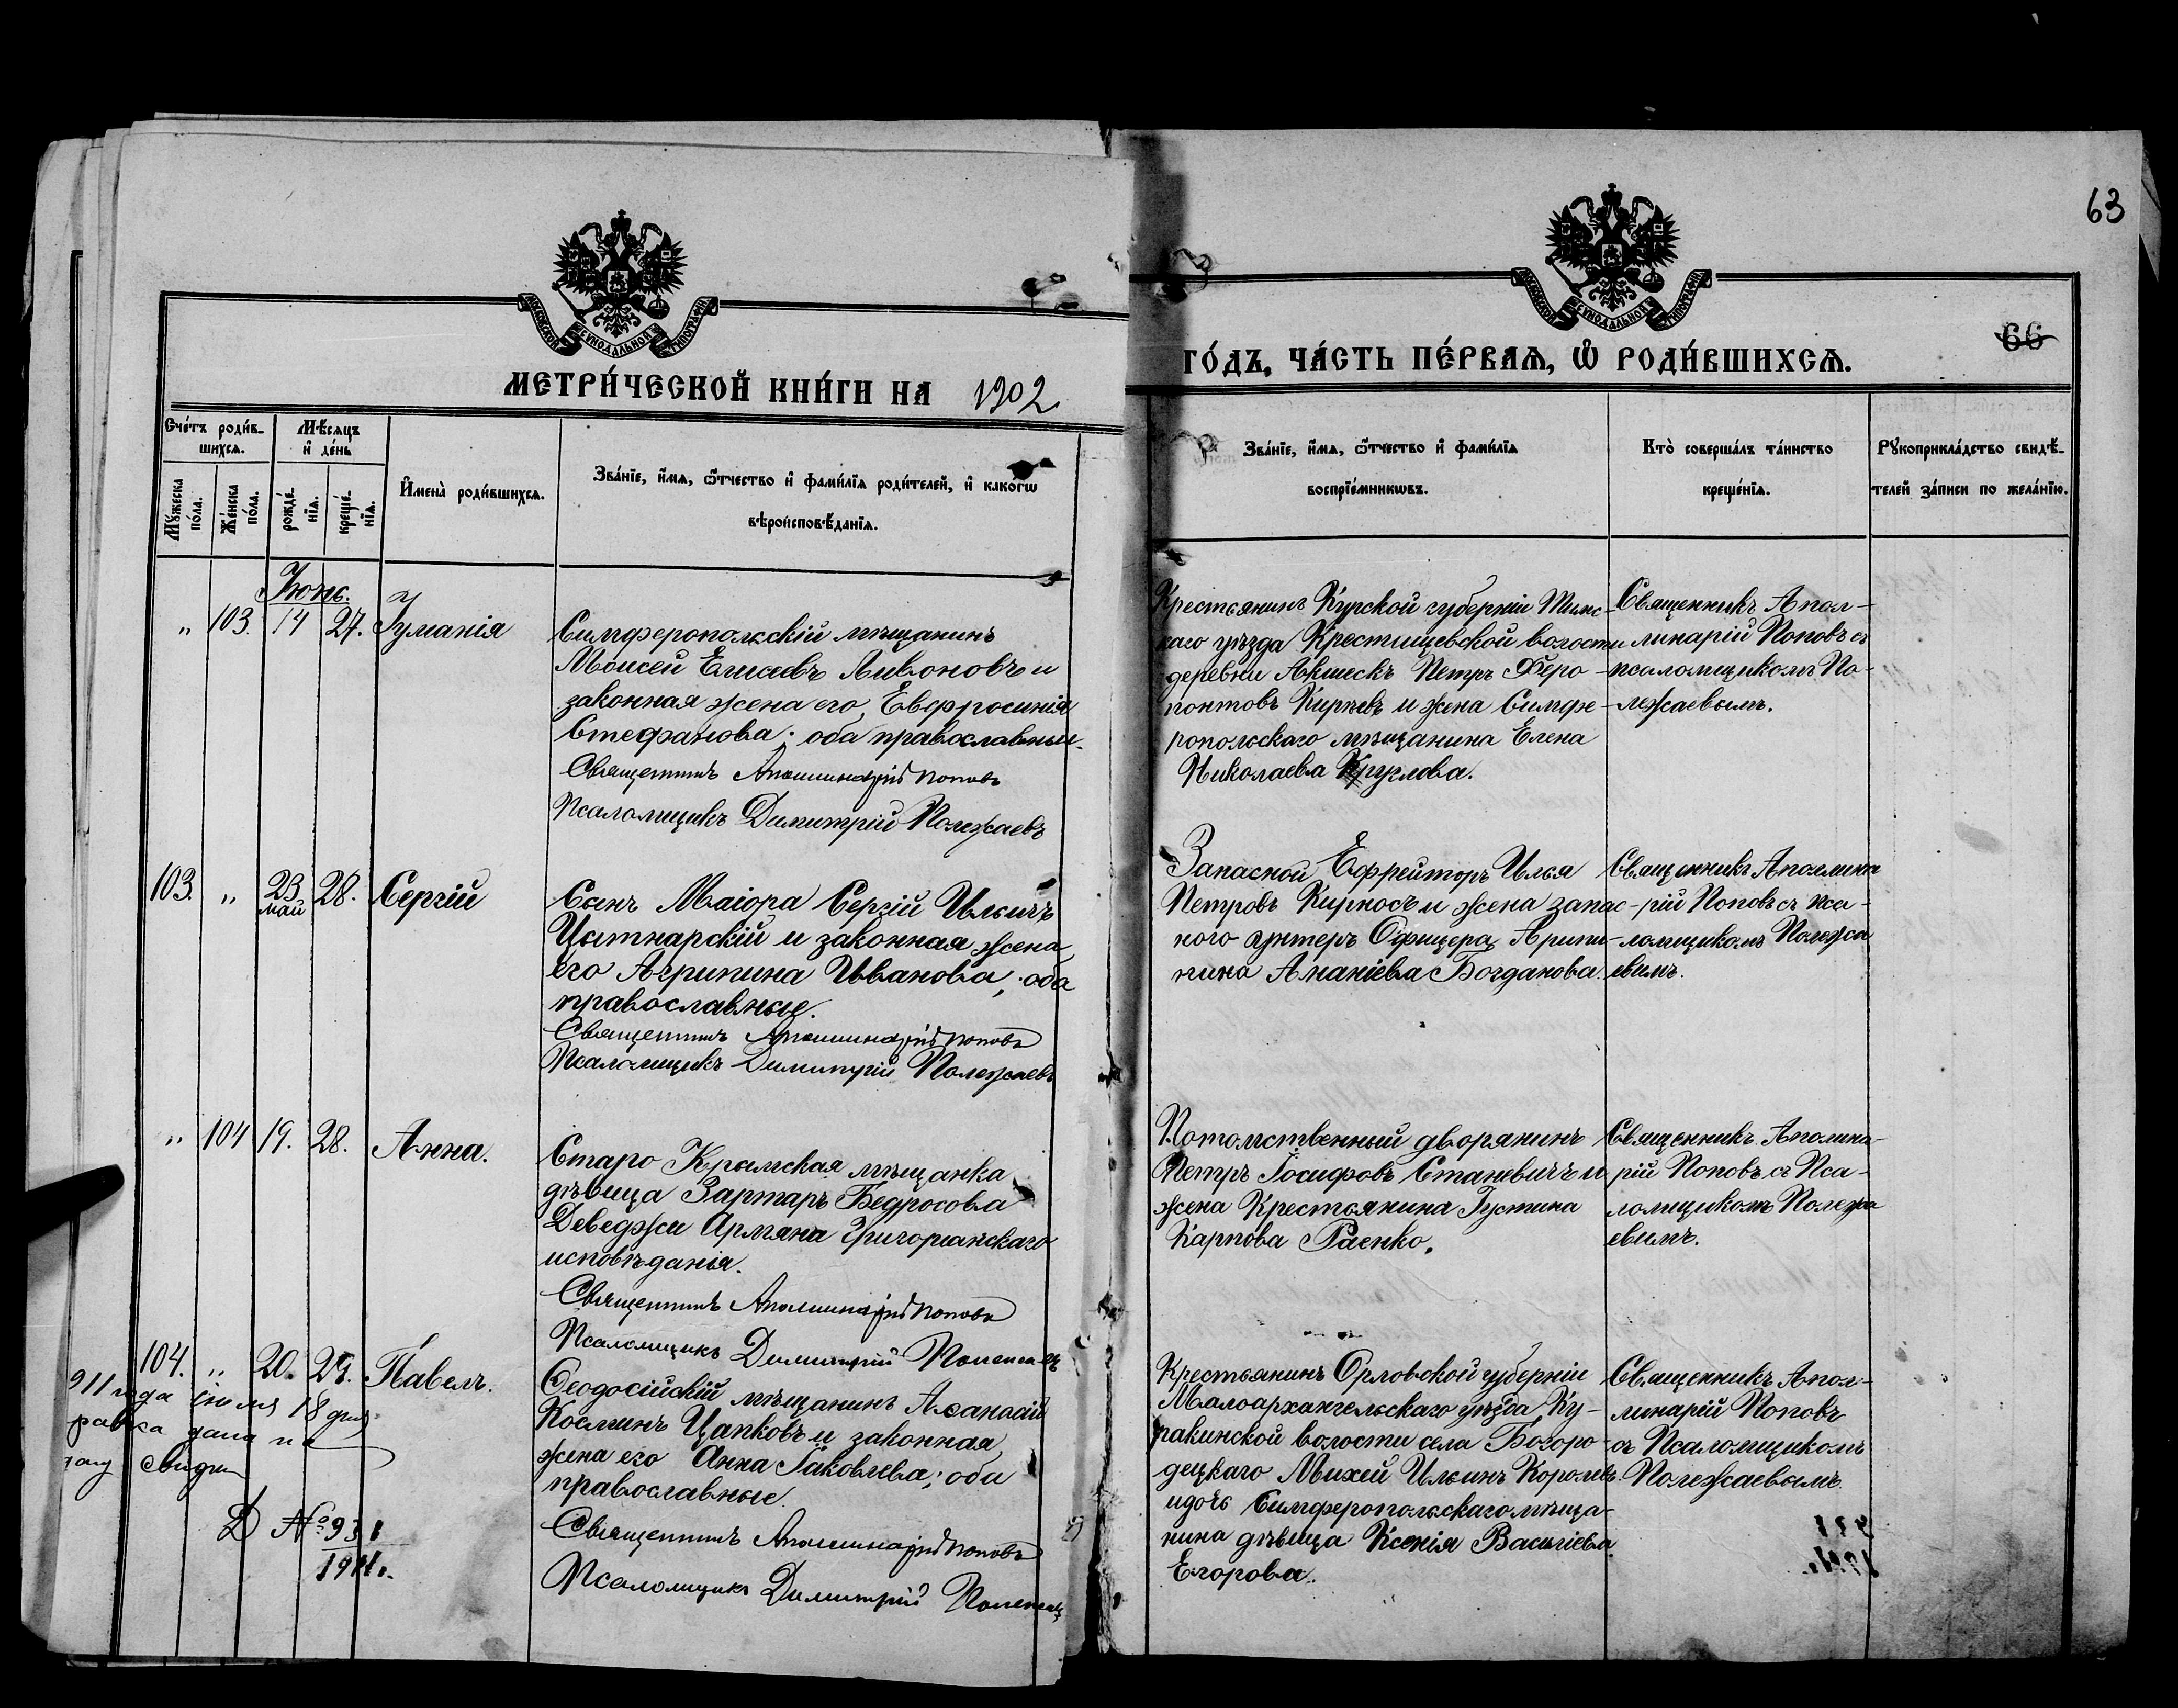 63
66
МОСКОВСКОЙ СѴНОДАЛЬНОЙ ТИПОГРАФІИ
МОСКОВСКОЙ СѴНОДАЛЬНОЙ ТИПОГРАФІИ
МЕТРИ́ЧЕСКОЙ КНИ́ГИ НА 1902
ГО́ДЪ, ЧА́СТЬ ПЕ́РВАЯ, Ѡ РОДИ́ВШИХСЯ.
Сче́тъ роди́в-
шихся.
Мѣ́сяцъ
и де́нь
Му́жеска
по́ла.
Же́нска
по́ла.
рожде́-
нїя.
креще́-
нїя.
Имена̀ роди́вшихся.
Зва́нїе, и́мя, ѻ́тчество и фами́лїя роди́телей, и како́гѡ
вѣроисповѣ́данїя.
Зва́нїе, и́мя, ѻ́тчество и фами́лїя
воспрїе́мникѡвъ.
Кто̀ соверша́лъ та́инство
креще́нїя.
Рꙋкоприкла́дство свидѣ́-
телей за́писи по жела́нїю.
Іюнь.
" 103. 14 27. Іуліанія
Симферопольскій мѣщанинъ
Моисей Елисеевъ Ливоновъ и
законная жена его, Евфросинія
Стефанова; оба православные.
Священникъ Аполлинарій Поповъ
Псаломщикъ Димитрій Полежаевъ
Крестьянинъ Курской губерніи Тимс-
каго уѣзда Крестищевской волости
деревни Петръ Феро-
понтовъ Кирѣевъ и жена Симфе-
ропольскаго мѣщанина Елена
Николаева Круглова.
Священникъ Апол-
линарій Поповъ съ
псаломщикомъ По-
лежаевымъ.
103. " 23 май 28. Сергій
Сынъ Маіора Сергій Ильичъ
Цытнарскій и законная жена
его Агрипина Иванова, оба
православные.
Священникъ Аполлинарій Поповъ
Псаломщикъ Димитрій Полежаевъ
Запасной Ефрейторъ Илья
Петровъ Кирносъ и жена запас-
ного унтеръ Офицера Агрипи-
нина Ананіева Богданова.
Священникъ Аполлина
рій Поповъ съ пса-
ломщикомъ Полежа
евымъ.
" 104 19. 28. Анна.
Старо Крымская мѣщанка
дѣвица Зартаръ Бедросова
Деведжи Армяно Григоріанскаго
исповѣданія.
Священникъ Аполлинарій Поповъ
Псаломщикъ Димитрій Полежаевъ
Потомственный дворянинъ
Петръ Іосифовъ Станевичъ и
жена Крестьянина Іустина
Карпова Раенко.
Священникъ Аполина-
рій Поповъ съ Пса-
ломщикомъ Полежа
евымъ.
104. " 20. 29. Павелъ.
Ѳеодосійскій мѣщанинъ Аѳанасій
Косминъ Цапковъ и законная
жена его Анна Іаковлева; оба
православные.
Священникъ Аполлинарій Поповъ
Псаломщикъ Димитрій Полежаевъ
Крестьянинъ Орловской губерніи
Малоархангельскаго уѣзда Ку-
ракинской волости села Богоро-
децкаго Михей Ильинъ Королевъ
и дочь Симферопольскаго мѣща-
нина дѣвица Ксенія Василіева
Егорова.
Священникъ Апол-
линарій Поповъ
съ Псаломщикомъ
Полежаевымъ.
911 года іюля 18 дня
дана
Д № 931
1911.